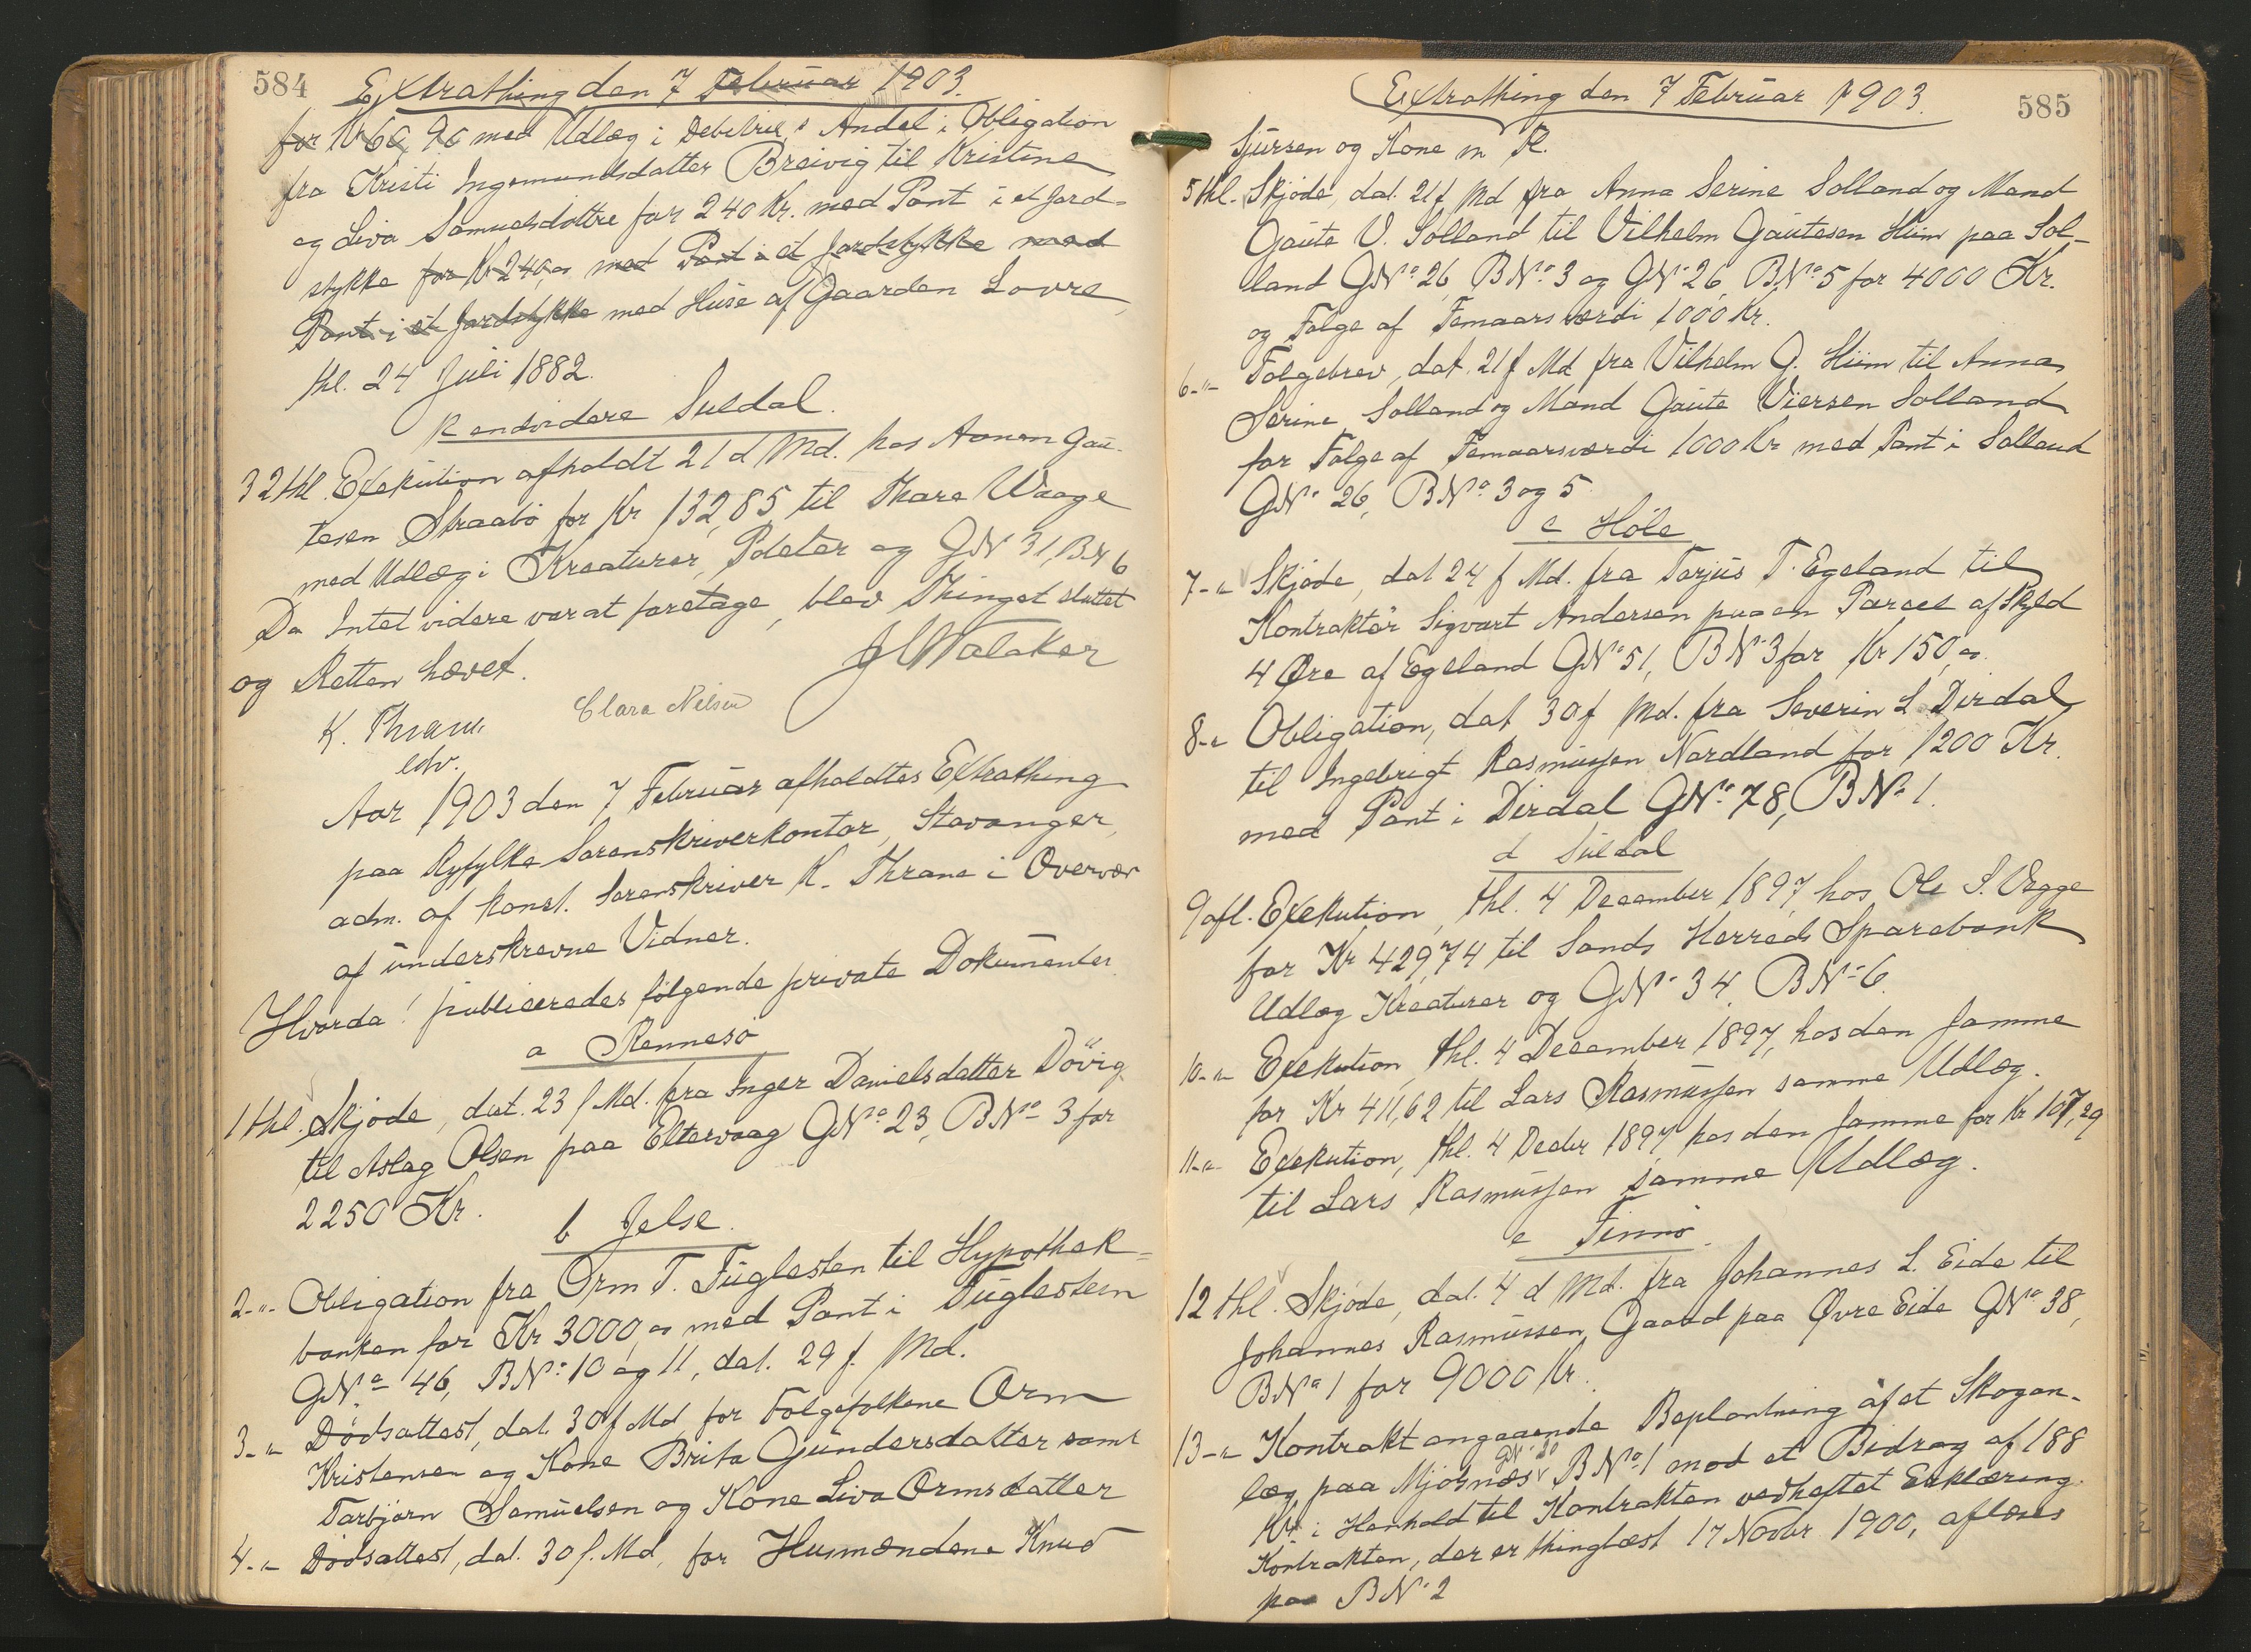 584
Extrathing den 7 Februar 1903.
for Kr 60,90 med Udlæg i Debitric's Andel i Obligation
fra Kristi Ingemundsdatter Breivig til Kristine
og Siva Samuelsdottre for 240 Kr. med Pant i et Jord-
stykke for Kr 240,oo med Pant i et Jordstykke med
Pant i et Jordstykke med Huse af Gaarden Lovre,
thl. 24 Juli 1882.
k endvidere Suldal.
32 thl. Exekution afholdt 21 d Md. hos Aanen Gau-
tesen Straabø for Kr 132,85 til Thore Waage
med Udlæg i Kreaturer, Poteter og GN 31, BN 6
Da Intet videre var at foretage, blev Thinget sluttet
og Retten hævet.
J C Valaker
K. Thrane
edv.
Clara Nilsen
Aar 1903 den 7 Februar afholdtes Extrathing
paa Ryfylke Sorenskriverkontor, Stavanger,
adm. af konst. Sorenskriver K. Thrane i Overvær
af underskrevne Vidner.
Hvorda! publiceredes følgende private Dokumenter
a Rennesø
1 thl. Skjøde, dat. 23 f Md. fra Inger Danielsdatter Døvig
til Aslag Olsen paa Eltervaag GNo 23, BNo 3 for
2250 Kr.
b Jelse.
2-"- Obligation fra Orm T. Fuglesten til Hypothek-
banken for Kr 3000,oo med Pant i Fuglestein
GNo 46, BNo 10 og 11, dat. 29 f. Md.
3-"- Dødsattest, dat. 30 f Md for Folgefolkene Orm
Kristensen og Kone Brita Gundersdatter samt
Torbjørn Samuelsen og Kone Siva Ormsdatter
4-"- Dødsattest, dat. 30 f. Md, for Husmændene Knud
585
Extrathing den 7 Februar 1903.
Sjursen og Kone m Fl.
5 thl. Skjøde, dat. 21 f Md fra Anna Serine Solland og Mand
Gaute V. Solland til Vilhelm Gautesen Hiim paa Sol-
land GNo 26, BNo 3 og GNo 26, BNo 5 for 4000 Kr.
og Folge af Femaarsværdi 1000 Kr.
6-"- Folgebrev, dat. 21 f Md fra Vilhelm G. Hiim til Anna
Serine Solland og Mand Gaute Viersen Solland
for Folge af Femaarsværdi 1000 Kr med Pant i Solland
GNo 26, BNo 3 og 5
c Høle
7-"- Skjøde, dat 24 f Md. fra Torjus T. Egeland til
Kontraktør Sigvart Andersen paa en Parcel af Skyld
4 Øre af Egeland GNo 51, BNo 3 for Kr 150,oo.
8-"- Obligation, dat 30 f Md. fra Severin L Dirdal
til Ingebrigt Rasmussen Nordland for 1200 Kr.
med Pant i Dirdal GNo 78, BNo 1.
d Suldal
9 afl. Exekution, thl. 4 December 1897, hos Ole S. Vegge
for Kr 429,74 til Sands Herreds Sparebank
Udlæg Kreaturer og GNo 34, BNo 6.
10-"- Exekution, thl. 4 December 1897, hos den Samme
for Kr 411,62 til Lars Rasmussen samme Udlæg.
11-"- Exekution, thl. 4 Decbr 1897 hos den Samme for Kr 107,29
til Lars Rasmussen samme Udlæg.
e Finnø.
12 thl. Skjøde, dat. 4 d Md. fra Johannes L. Eide til
Johannes Rasmussen Gaard paa Øvre Eide GNo 38,
BNo 1 for 9000 Kr.
13-"- Kontrakt angaaende Beplantning af et Skogan-
læg paa Mjøsnæs GNo 20 BNo 1 mod et Bidrag af 188
Kr. i Henhold til Kontrakten vedheftet Erklæring.
Kontrakten, der er thinglæst 17 Novbr 1900, aflæses
paa BNo 2